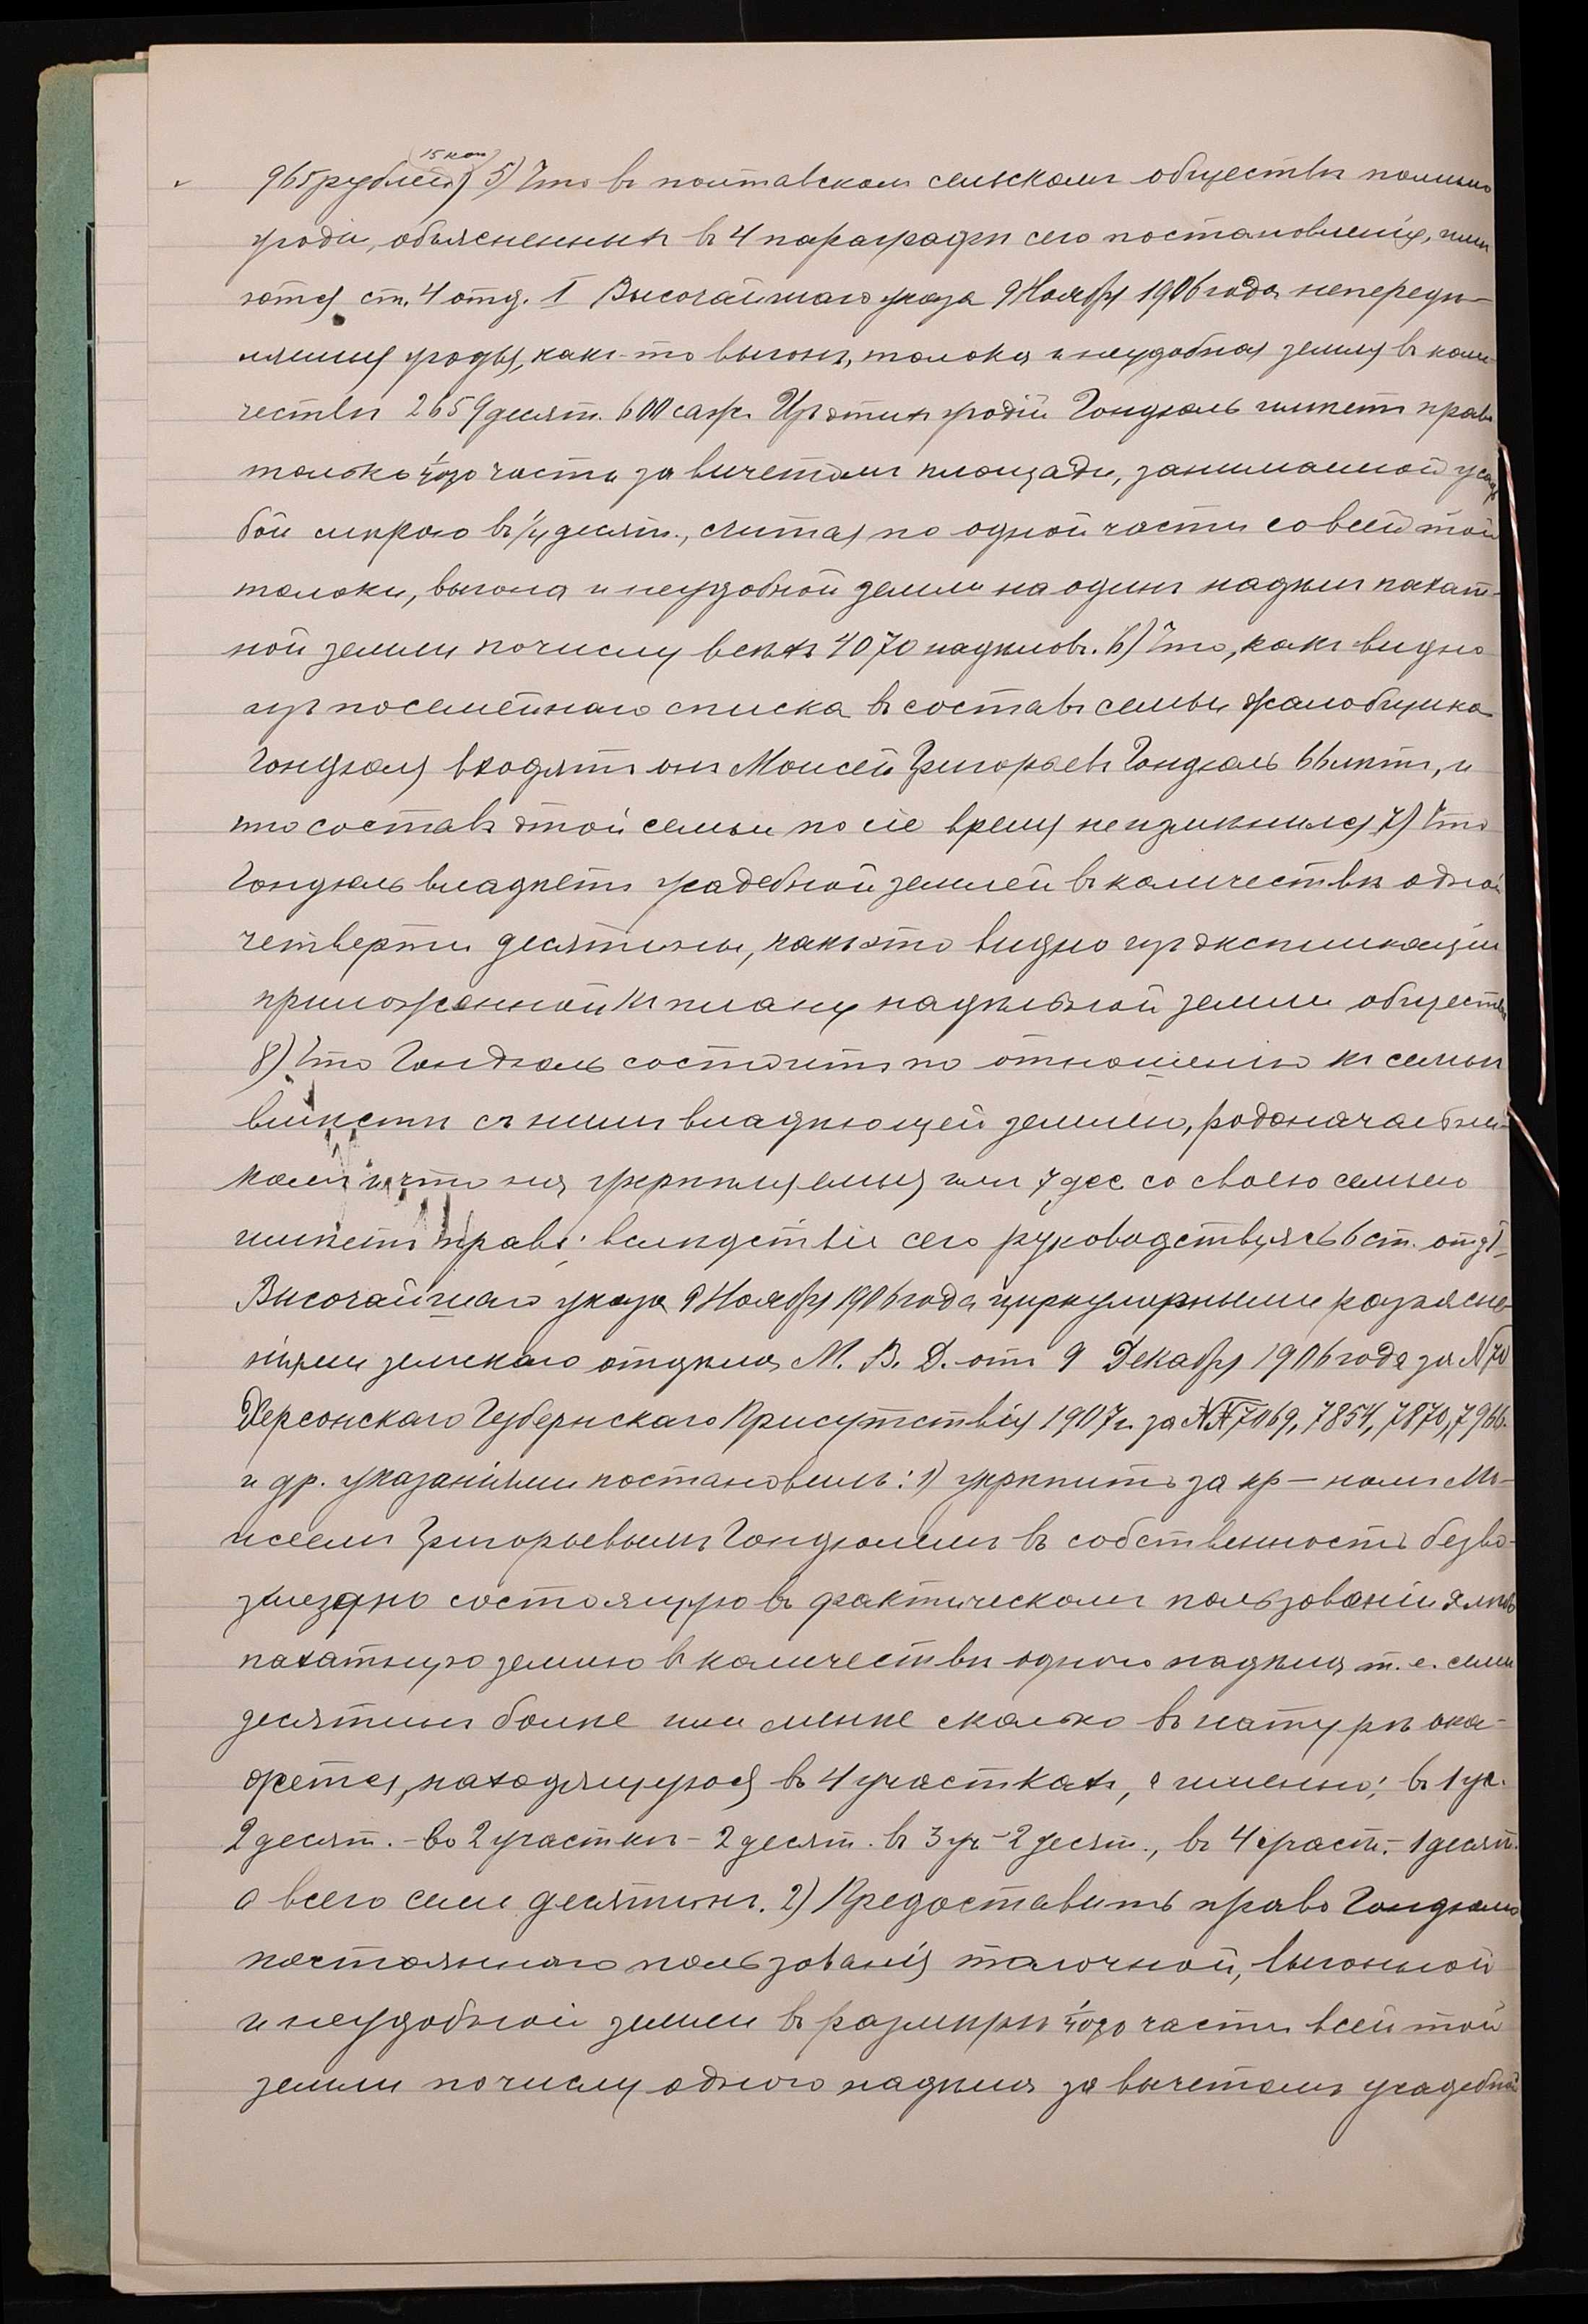 15 коп
965 рублей) 5) Что въ полтавскомъ сельскомъ обществѣ помимо
угодій, объясненныхъ въ 4 параграфѣ сего постановленія, имѣ
ются ст. 4 отд. I Высочайшаго указа 9 Ноября 1906 года непередѣ-
лямыя угодья, какъ-то выгонъ, толока и неудобная земля въ коли-
чествѣ 2659 десят. 600 саж. Изъ этихъ угодій Гондюль имѣетъ право
только 1/4070 часть за вычетомъ площади, занимаемой усадь
бой мѣрою въ 1/4 десят., считая по одной части со всей той
толоки, выгона и неудобной земли на одинъ надѣлъ пахат-
ной земли по числу всѣхъ 4070 надѣловъ. 6) Что, какъ видно
изъ посемейнаго списка въ составъ семьи жалобщика
Гондюля входятъ онъ Моисей Григорьевъ Гондюль 66 лѣтъ, и
что составъ этой семьи по сіе время не измѣнился 7) Что
Гондюль владѣетъ усадебной землей въ количествѣ одной
четверти десятины, какъ это видно изъ экспликаціи
приложенной къ плану надѣльной земли общества
8) Что Гондюль состоитъ по отношенію къ семьѣ
вмѣстѣ съ нимъ владѣющей землею, родоначальни-
комъ и что на укрѣпляемыя имъ 7 дес со своею семьею
имѣетъ право; вслѣдствіе сего руководствуясь 6 ст. отд I
Высочайшаго указа 9 Ноября 1906 года циркулярными разъясне-
ніями земскаго отдѣла М. В. Д. отъ 9 Декабря 1906 года за № 70
Херсонскаго Губернскаго Присутствія 1907 г. за №№ 7069, 7854, 7870, 7966
и др. указаніями постановилъ: 1) укрѣпить за кр-номъ Мо-
исеемъ Григорьевымъ Гондюлемъ въ собственность безво-
змездно состоящую въ фактическомъ пользованіи его
пахатную землю въ количествѣ одного надѣла т. е. семи
десятинъ болѣе или менѣе сколько въ натурѣ ока-
жется, находящуюся въ 4 участкахъ, а именно: въ 1 уч.
2 десят. - во 2 участкѣ - 2 десят. въ 3 уч - 2 десят., въ 4 участ. - 1 десят.
а всего семь десятинъ. 2) Предоставить право Гондюлю
постояннаго пользованія толочной, выгонной
и неудобной земли въ размѣрѣ 1/4070 части всей той
земли по числу одного надѣла за вычетомъ усадебной